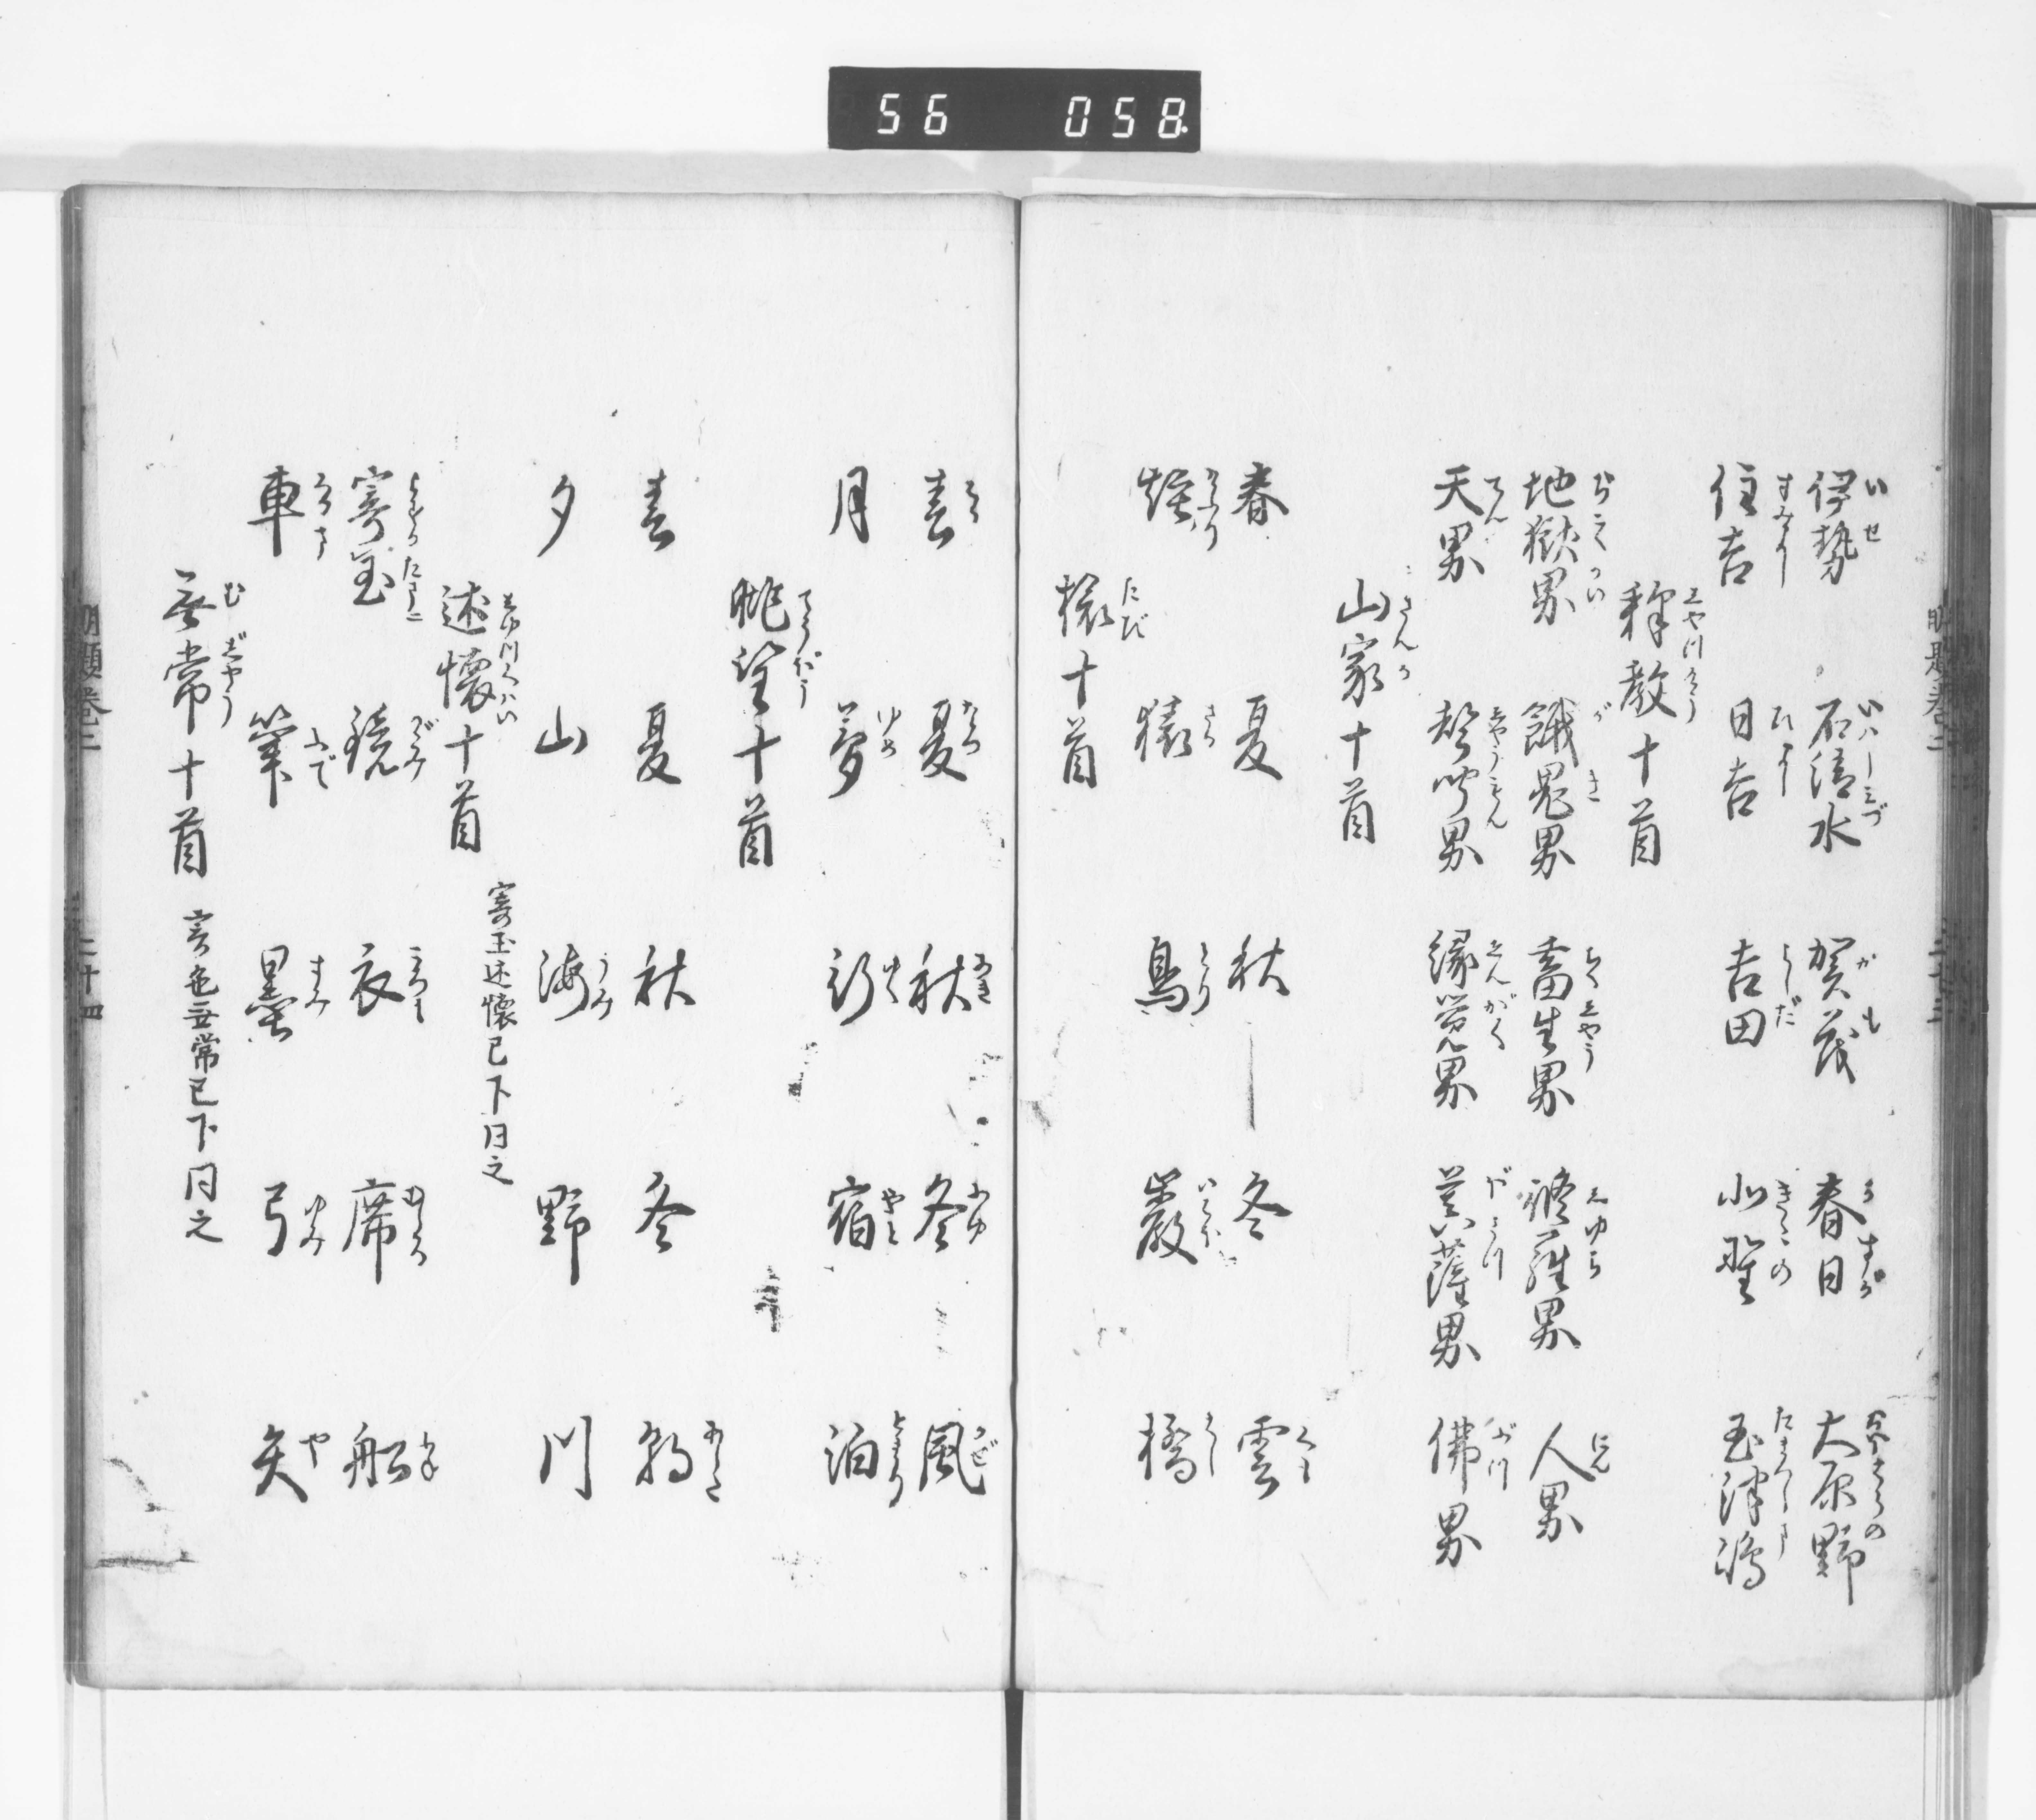 56 058
伊勢 石清水 賀茂 春日 大原野
住吉 日吉 吉田 北野 玉津嶋
釋教十首
地獄界 餓鬼界 畜生界 脩羅界 人界
天界 聲聞界 縁覚界 菩薩界 佛界
山家十首
春 夏 秋 冬 雲
煙 猿 鳥 巌 橋
旅十首
春 夏 秋 冬 風
月 夢 行 宿 泊
眺望十首
春 夏 秋 冬 朝
夕 山 海 野 川
述懐十首 寄玉述懐已下同之
寄玉 鏡 衣 席 船
車 筆 墨 弓 矢
無常十首 寄色無常已下同之
明題巻二 二十四